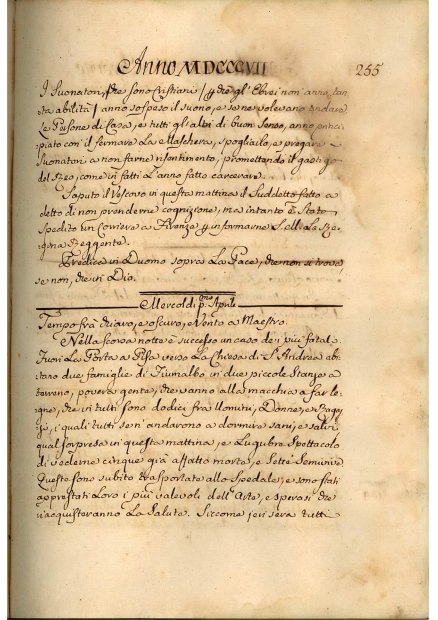 Anno MDCCCVII 255
I Suonatori, che sono Cristiani / che gl'Ebrei non anno tan
ta abilità / anno sospeso il suono, e se ne volevano andare
Le Persone di Casa, e tutti gl'altri di buon senso, anno princi
piato con il fermare La Maschera, spogliarlo, e pregare i
Suonatori a non farne risentimento, promettendo il gastigo
del Reo, come in fatti L'anno fatto carcerare.
Saputo il Vescovo in questa mattina il Suddetto fatto a
detto di non prenderne cognizione, ma intanto è Stato
spedito un Corriere a Firenze informarne S. M. La Re
gina Reggente.
Predica in Duomo sopra La Pace, che non si trova,
se non, che in Dio.
Mercoldì p.mo Aprile
Tempo frà chiaro, e oscuro, e Vento a Maestro.
Nella scorsa notte è successo un caso de i più fatali.
Fuori La Porta a Pisa verso La Chiesa di S. Andrea abi
tano due famiglie di Fiumalbo in due piccole Stanze a
terreno, povera gente, che vanno alla macchia a far le
gne, che in tutti sono dodici frà Uomini, Donne, e Ragaz
zi, i quali tutti se n'andarono a dormire sani, e salvi
qual sorpresa in questa mattina, e Lugubre Spettacolo
di vederne cinque già affatto morte, e Sette Semivive
Queste sono subito trasportate allo Spedale, e sono stati
apprestati Loro i più valevoli dell'Arte, e sperasi che
riacquisteranno La Salute. Siccome jeri sera tutti